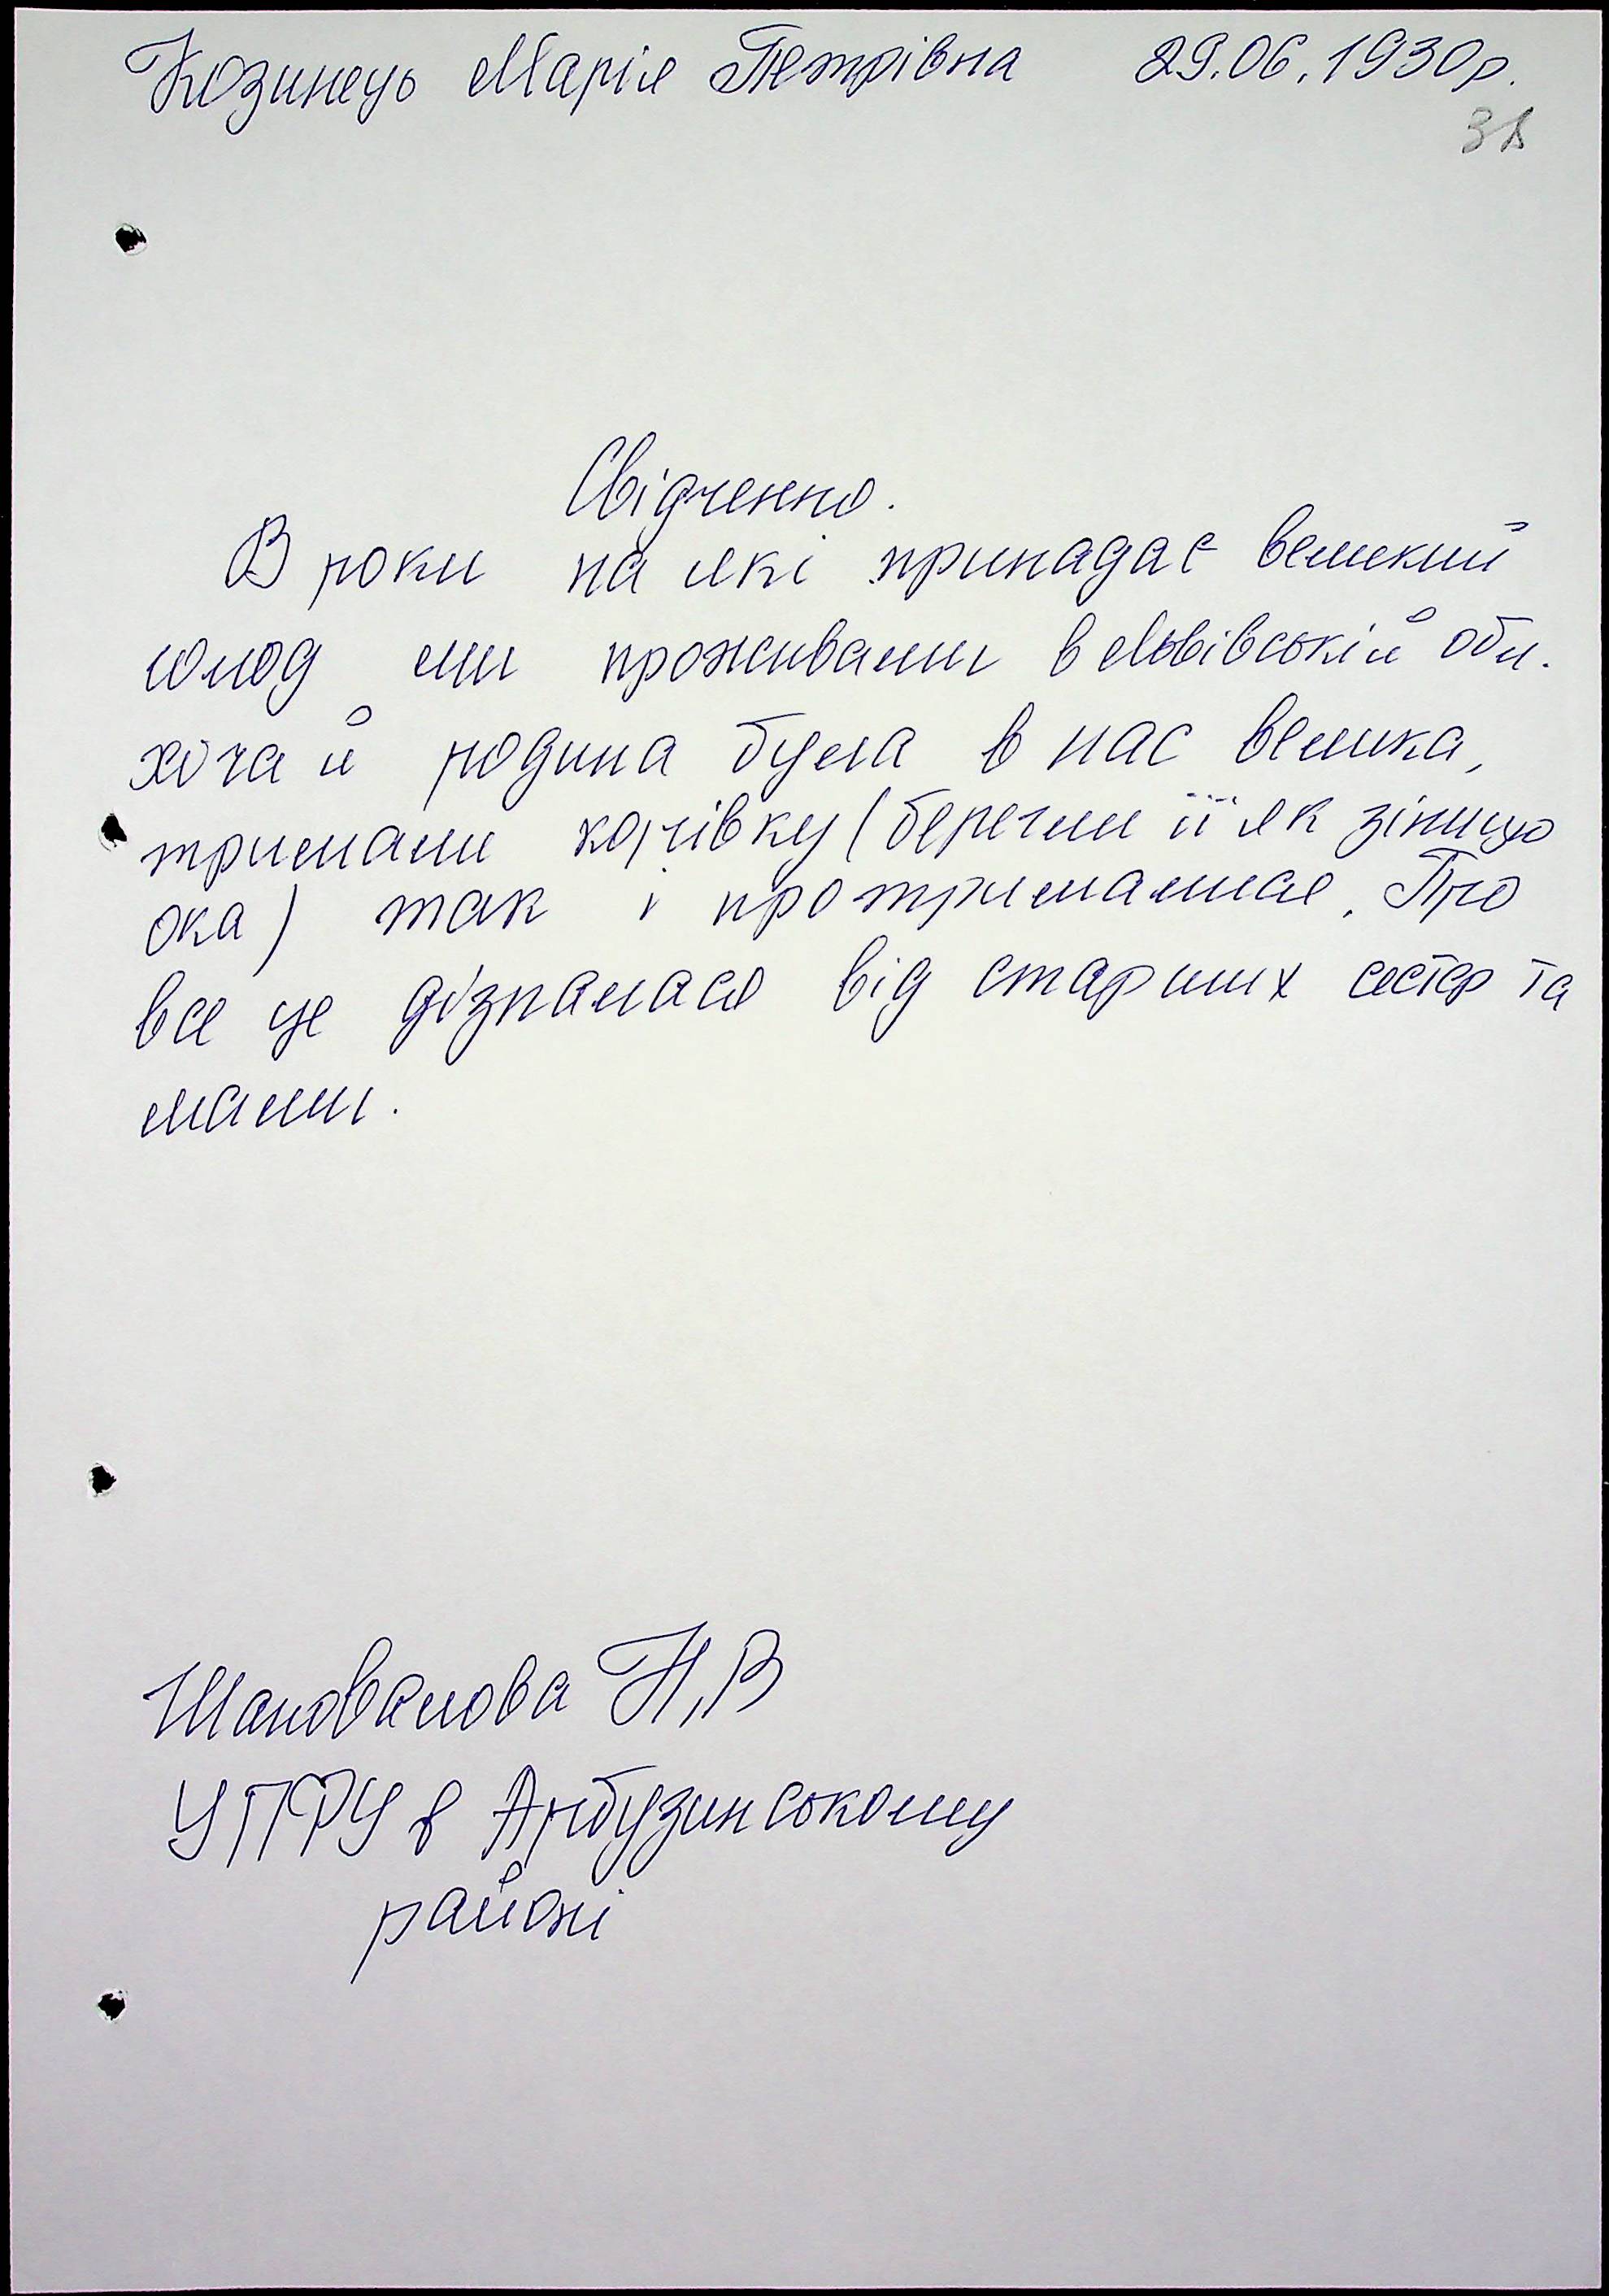 Козинець Марія Петрівна 29.06.1930р.
Свідчення.
В роки на які припадає великий
голод ми проживали в Львівській обл.
хоча й родина була в нас велика,
тримали корівку (берегли її як зіницю
ока) так і протрималися. Про
все це дізналася від старших сестер та
мами.
Шаповалова Н,В
УПФУ в Арбузинському
районі